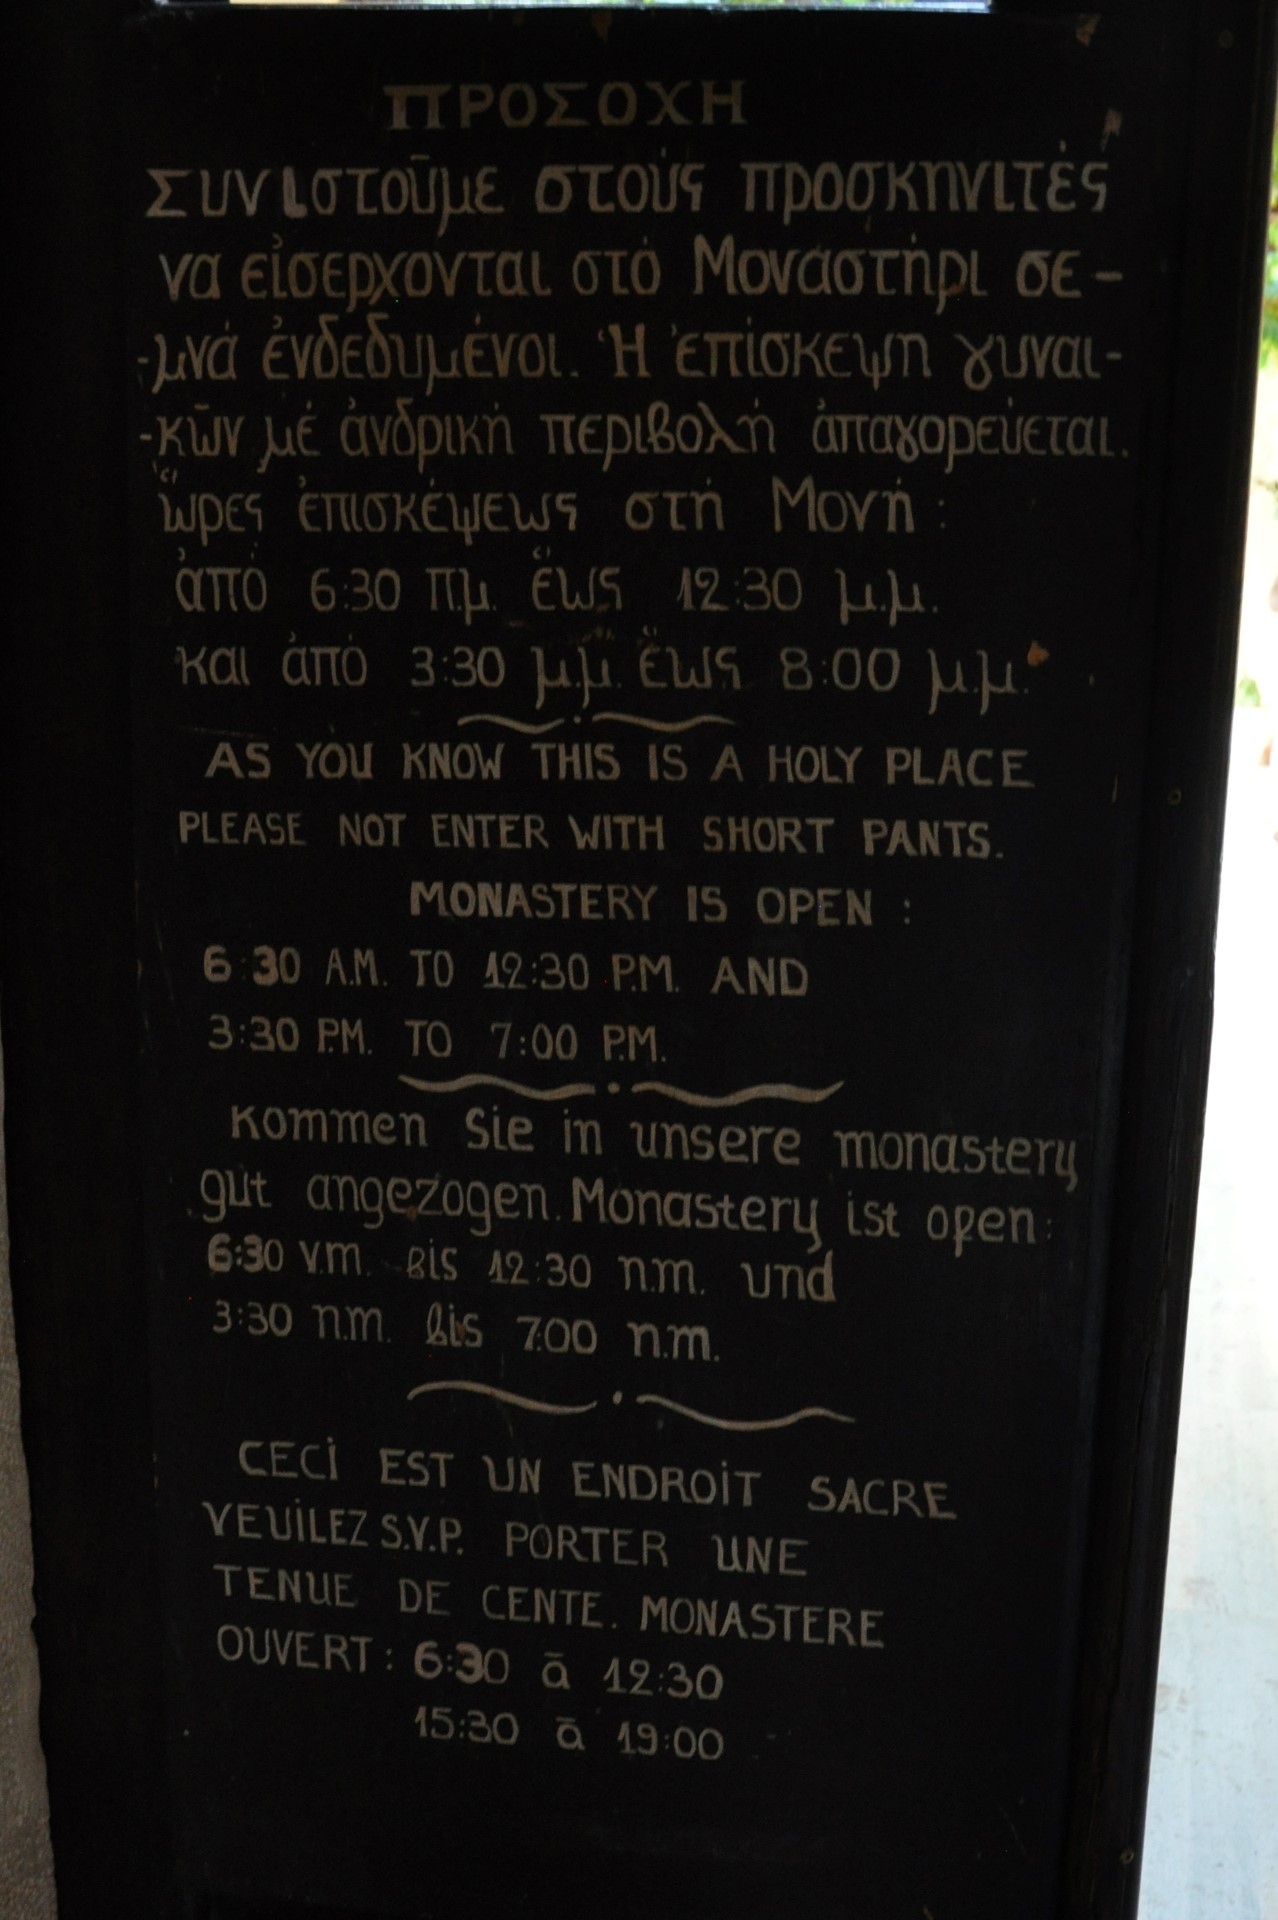 ΠΡΟΣΟΧΗ
Συνιστοῦμε στούς προσκηνιτές
να εἰσερχονται στό Μοναστήρι σε-
-μνά ἐνδεδυμένοι. Ἡ ἐπίσκεψη γυναι-
-κῶν μέ ἀνδρική περιβολή ἀπαγορεύεται.
ὧρες ἐπισκέψεως στή Μονή :
ἀπό 6:30 π.μ. ἕως 12:30 μ.μ.
και ἀπό 3:30 μ.μ. ἕως 8:00 μ.μ.
AS YOU KNOW THIS IS A HOLY PLACE
PLEASE NOT ENTER WITH SHORT PANTS.
MONASTERY IS OPEN :
6:30 A.M. TO 12:30 P.M. AND
3:30 P.M. TO 7:00 P.M.
Kommen Sie in unsere monastery
gut angezogen. Monastery ist open:
6:30 v.m. bis 12:30 n.m. und
3:30 n.m. bis 7:00 n.m.
CECi EST UN ENDROiT SACRE
VEUiLEZ S.V.P. PORTER UNE
TENUE DE CENTE. MONASTERE
OUVERT : 6:30 ā 12:30
15:30 ā 19:00